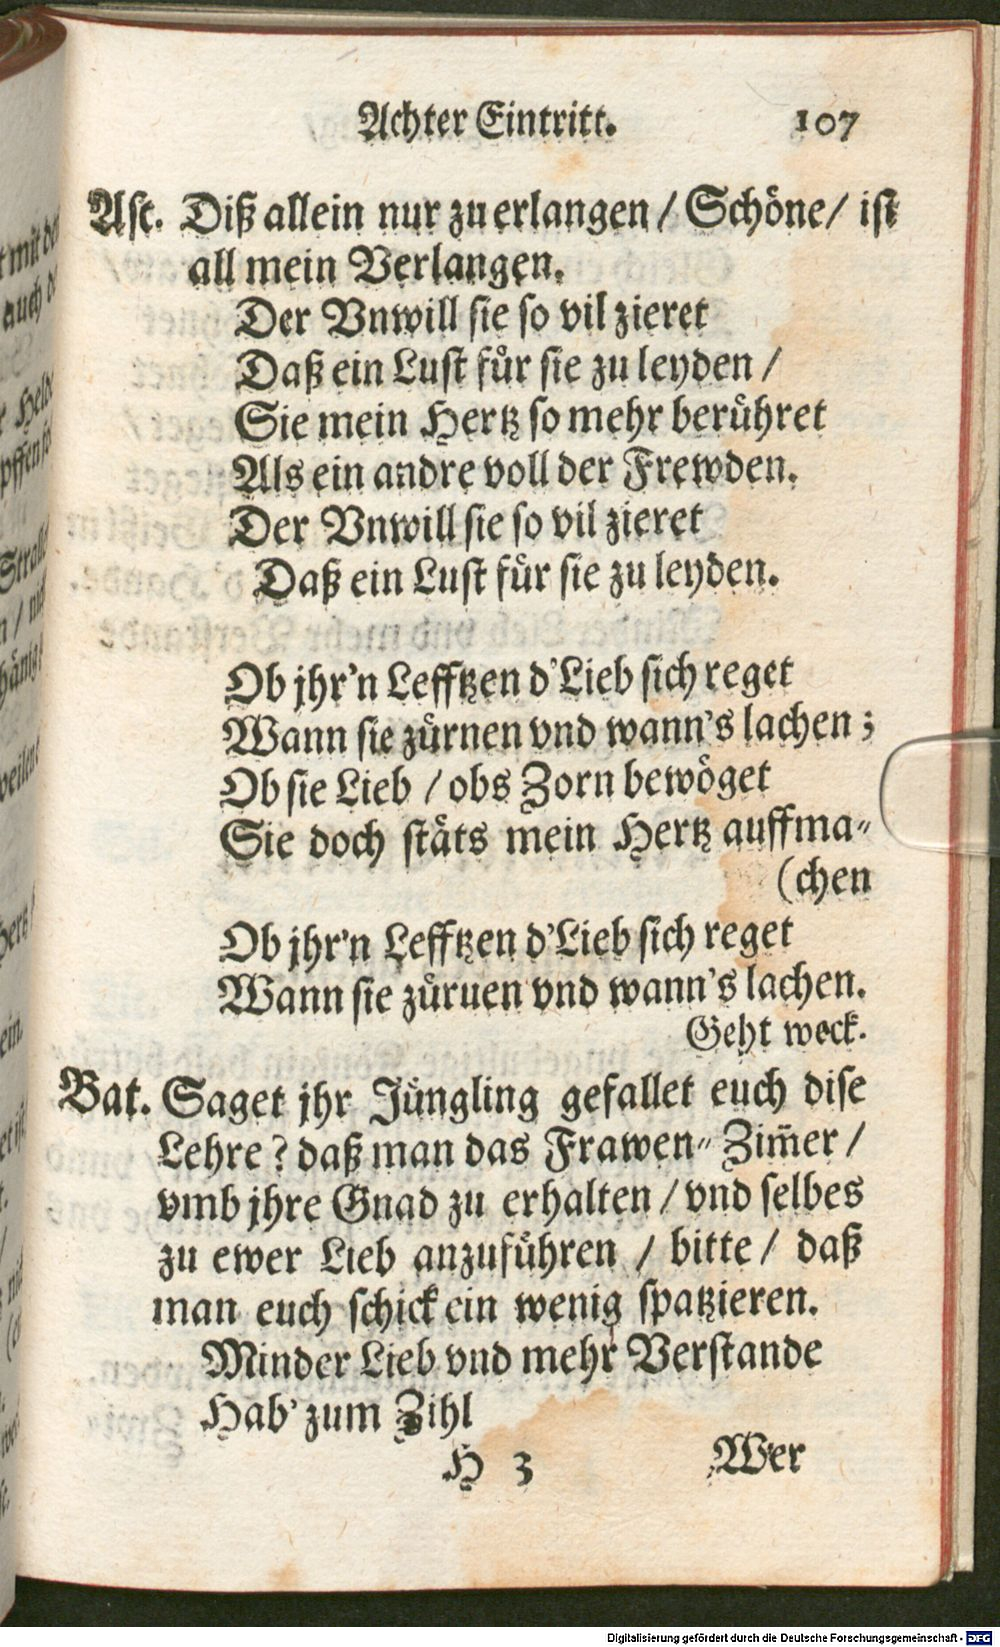 Achter Eintritt. 107
Ast. Diß allein nur zu erlangen / Schöne / ist
all mein Verlangen.
Der Vnwill sie so vil zieret
Daß ein Lust für sie zu leyden /
Sie mein Hertz so mehr berühret
Als ein andre voll der Frewden.
Der Vnwill sie so vil zieret
Daß ein Lust für sie zu leyden.
Ob jhr'n Lefftzen d'Lieb sich reget
Wann sie zürnen vnd wann's lachen ;
Ob sie Lieb / obs Zorn bewöget
Sie doch stäts mein Hertz auffma-
(chen
Ob jhr'n Lefftzen d'Lieb sich reget
Wann sie züruen vnd wann's lachen.
Geht weck.
Bat. Saget jhr Jüngling gefallet euch dise
Lehre ? daß man das Frawen-Zim̃er /
vmb jhre Gnad zu erhalten / vnd selbes
zu ewer Lieb anzuführen / bitte / daß
man euch schick ein wenig spatzieren.
Minder Lieb vnd mehr Verstande
Hab' zum Zihl
H 3 Wer
Digitalisierung gefördert durch die Deutsche Forschungsgemeinschaft - DFG